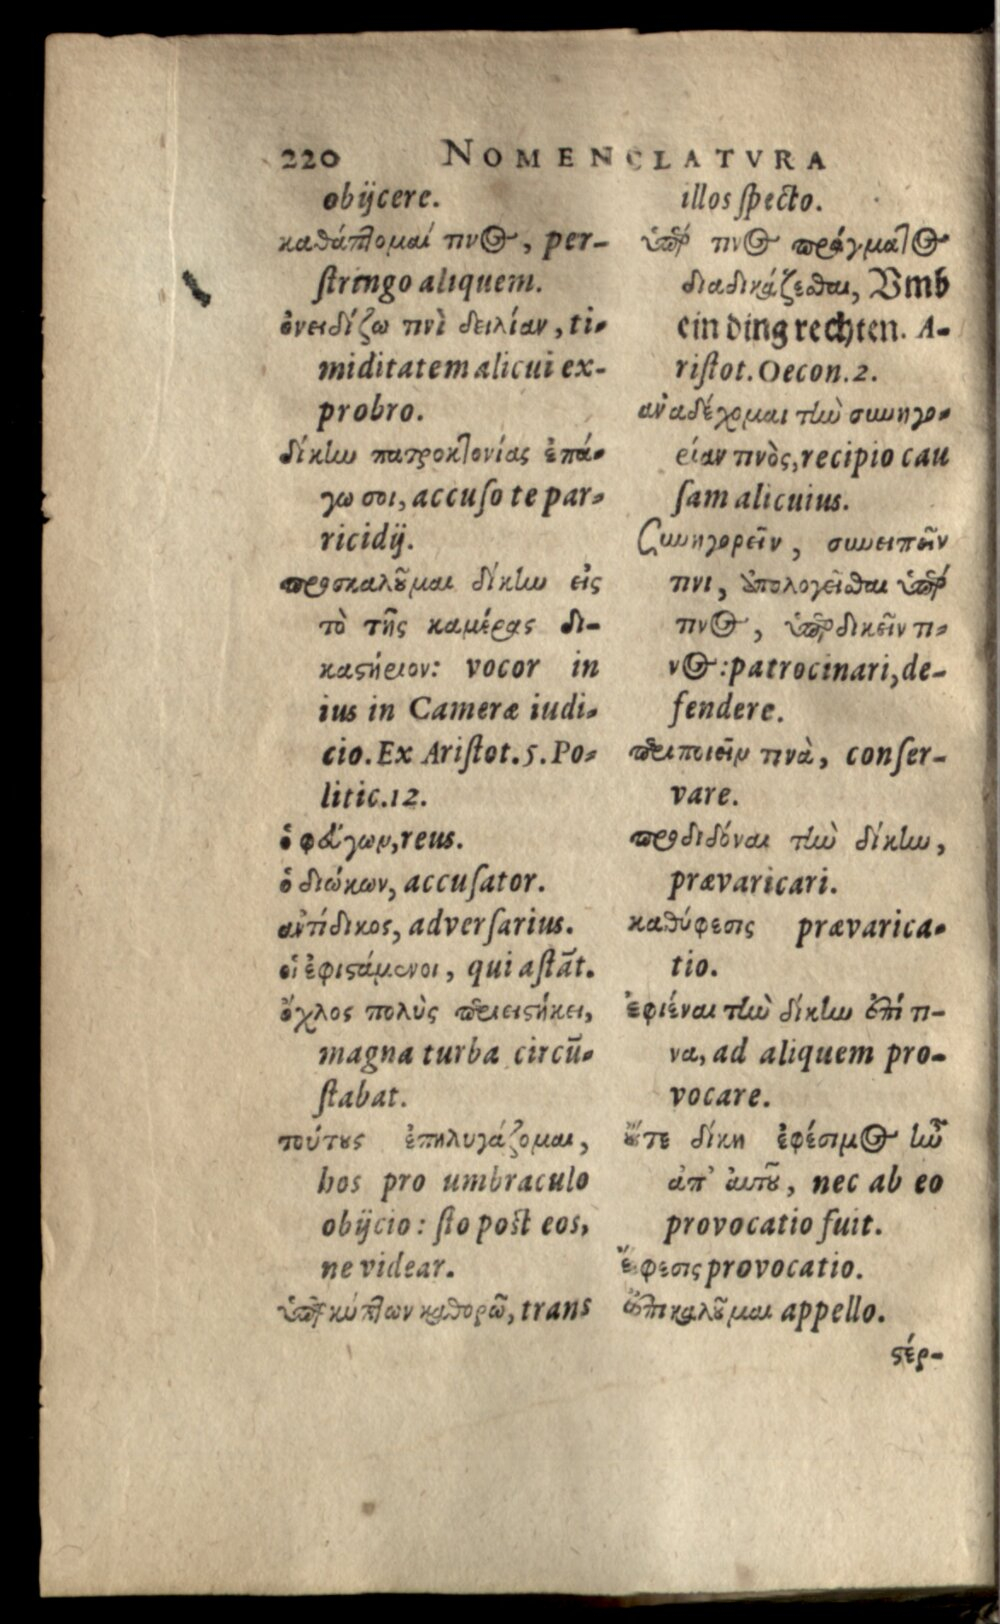 220 NOMENCLATVRA
obijcere.
καθάπτομαί τινος, per-
stringo aliquem.
ὀνειδίζω τινὶ δειλίαν, ti-
miditatem alicui ex-
probro.
δίκην πατροκτονίας ἐπά-
γω σοι, accuso te par-
ricidij.
προσκαλοῦμαι δίκην εἰς
τὸ τῆς καμέρας δι-
καστήριον: vocor in
ius in Cameræ iudi-
cio. Ex Aristot. 5. Po-
litic. 12.
ὁ φεύγων, reus.
ὁ διώκων, accusator.
ἀντίδικος, adversarius.
οἱ ἐφιστάμενοι, qui astãt.
ὄχλος πολὺς περιειστήκει,
magna turba circũ-
stabat.
τούτους ἐπηλυγάζομαι,
hos pro umbraculo
obijcio: sto post eos,
ne videar.
ὑπὲρ κύπτων καθορῶ, trans
illos specto.
ὑπὲρ τινος πράγματος
διαδικάζεσθαι, Vmb
ein ding rechten. A-
ristot. Oecon. 2.
ἀναδέχομαι τὴν συνηγο-
ρίαν τινὸς, recipio cau
sam alicuius.
Συνηγορεῖν, συνειπεῖν
τινι, ἀπολογεῖσθαι ὑπὲρ
τινος, ὑπὲρδικεῖν τι-
νος: patrocinari, de-
fendere.
περιποιεῖν τινὰ, conser-
vare.
προδιδόναι τὴν δίκην,
prævaricari.
καθύφεσις prævarica-
tio.
ἐφιέναι τὴν δίκην ἐπί τι-
να, ad aliquem pro-
vocare.
οὔτε δίκη ἐφέσιμος ἦν
ἀπ' αὐτοῦ, nec ab eo
provocatio fuit.
ἔφεσις provocatio.
ἐπικαλοῦμαι appello.
στέρ-